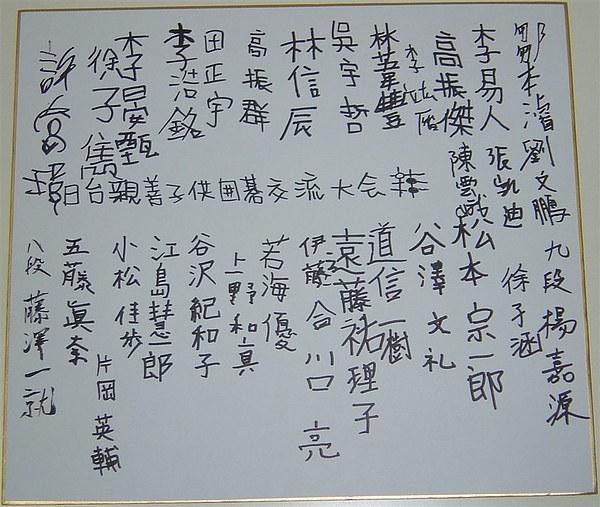 劉文鵬
九段 楊嘉源
李易人
張凱迪
徐子涵
高振傑
陳雲
松本宗一郎
谷澤文礼
道信一樹
吳宇哲
遠藤祐理子
林信辰
伊藤
川口亮
高振群
若海優
田正宇
上野和真
李浩銘
谷沢紀和子
江島慧一郎
徐子雋
小松佳歩
片岡英輔
日台親善子供囲碁交流大会
五藤眞奈
八段 藤澤一就